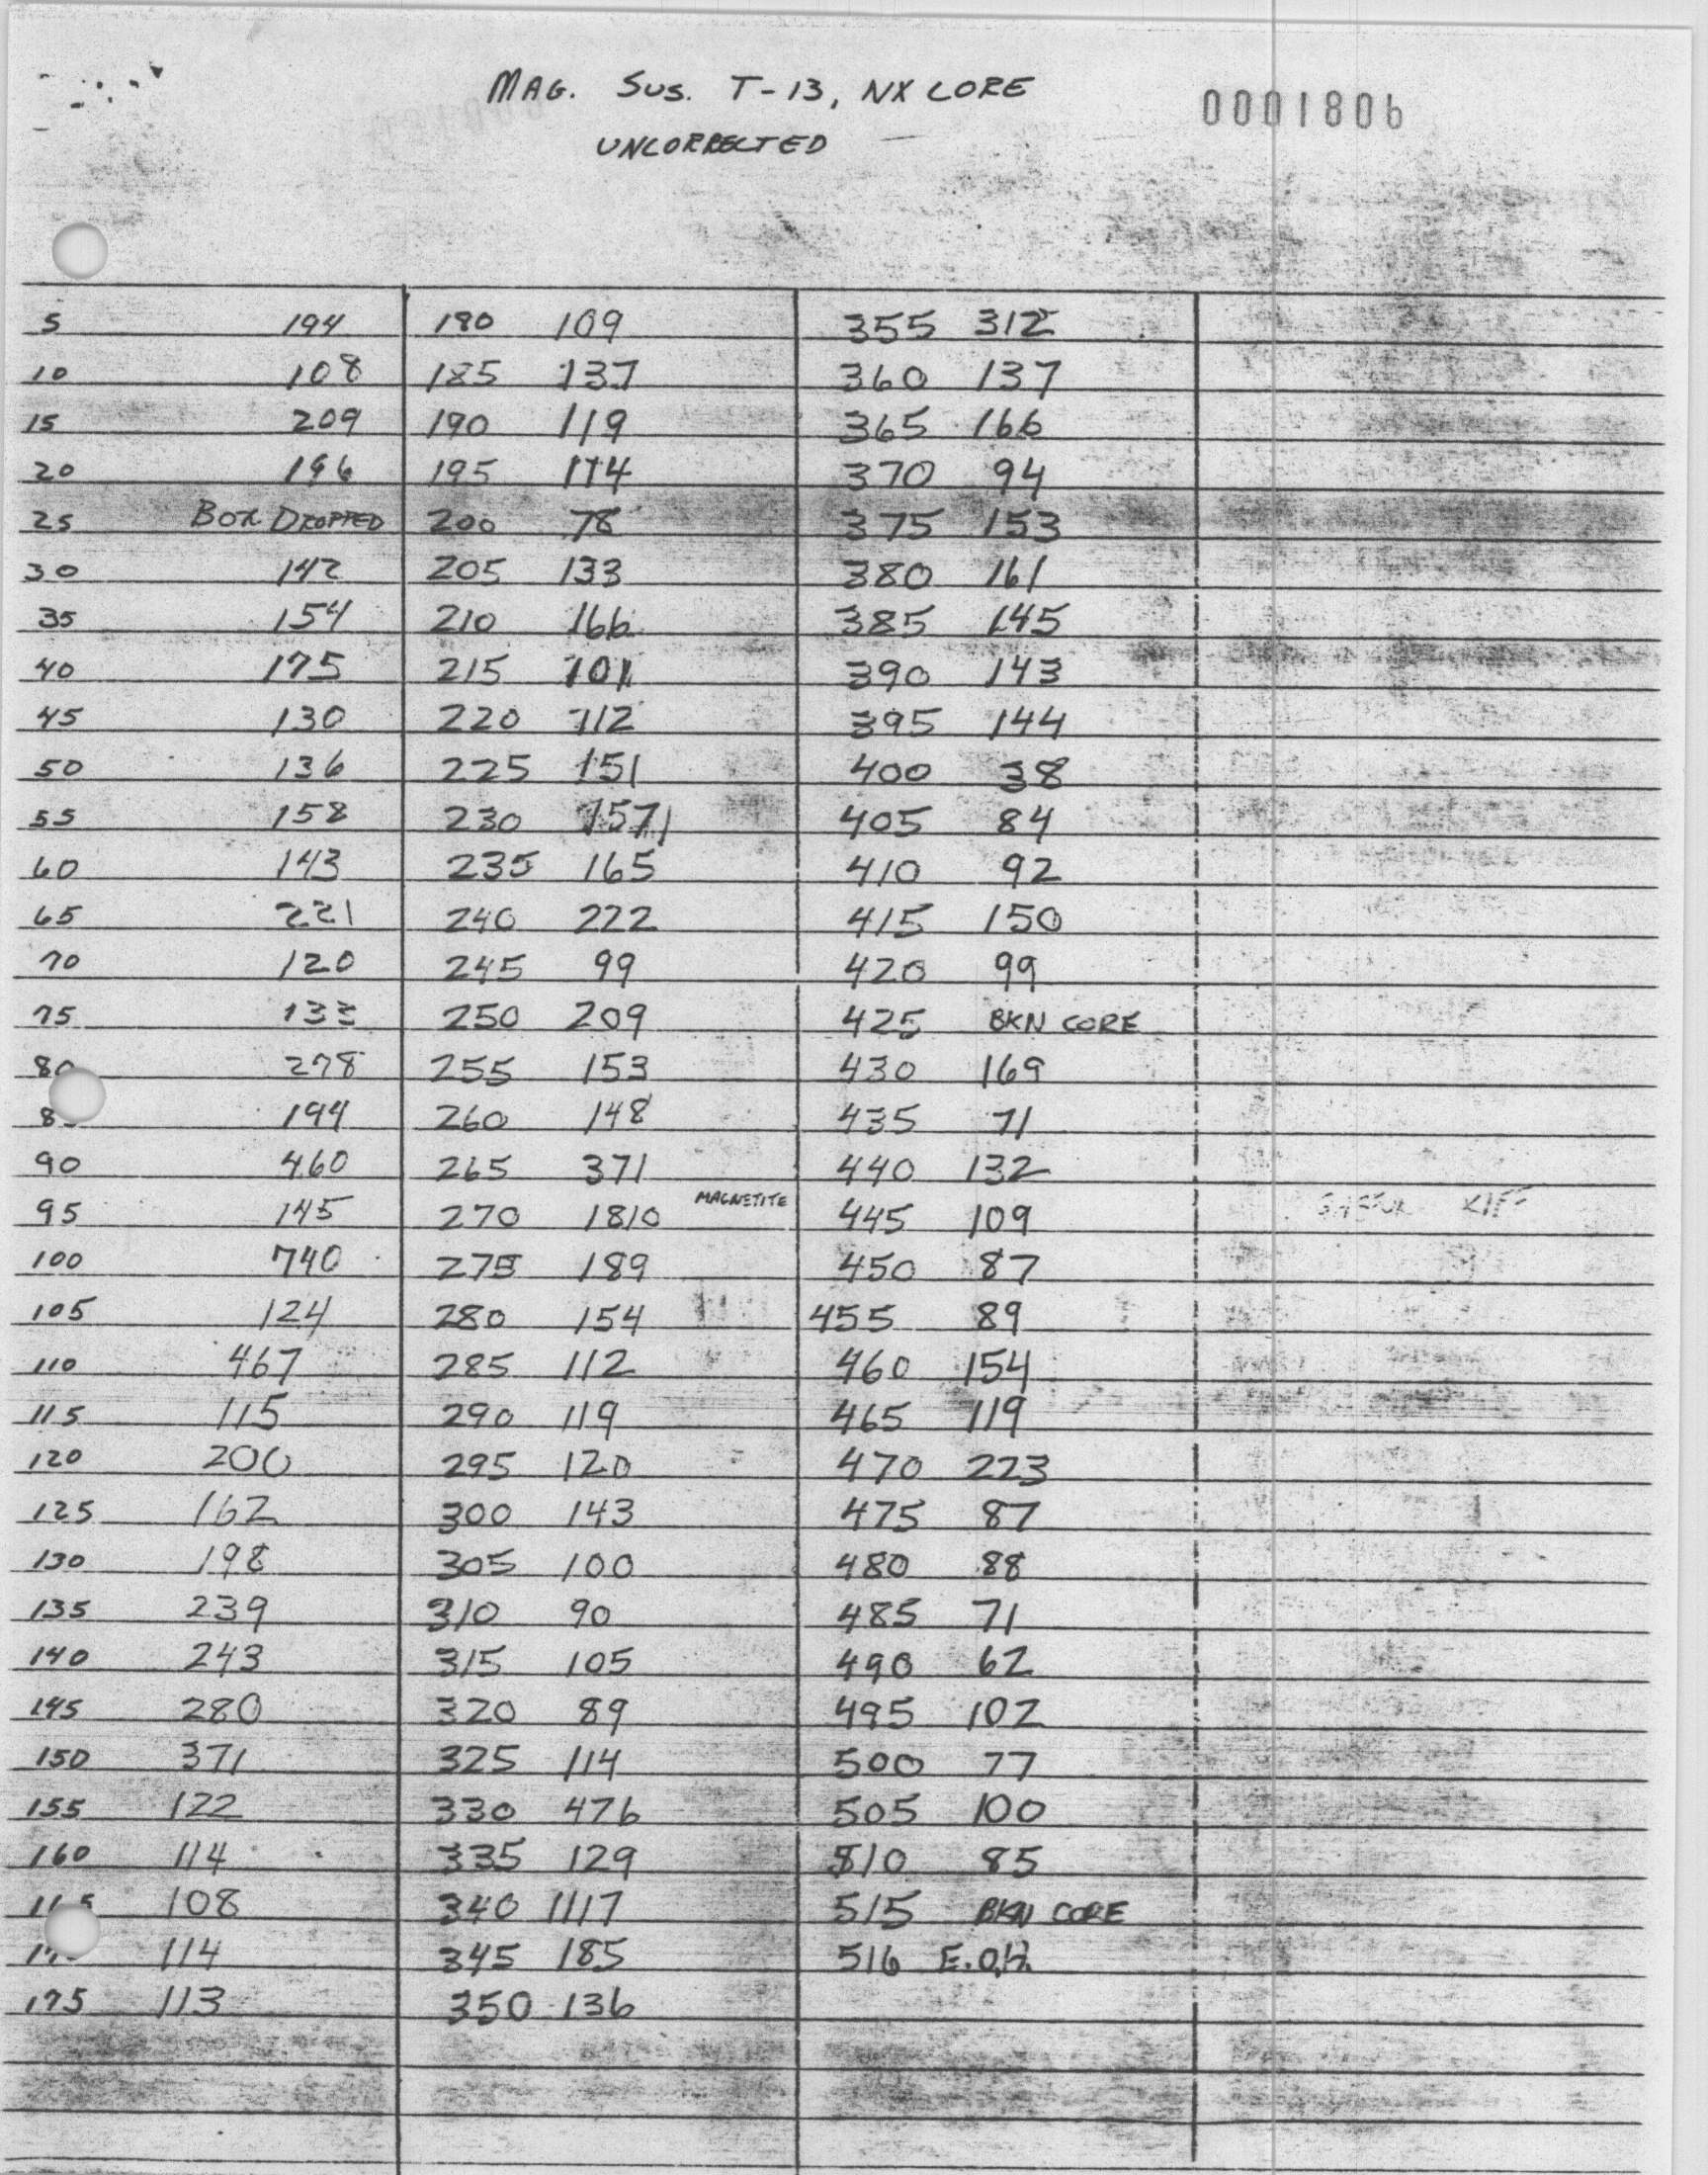 MAG. SUS. T-13, NX CORE
0001806
UNCORRECTED
5 194 180 109 355 312
10 108 185 137 360 137
15 209 190 119 365 166
20 196 195 114 370 94
25 BOX DROPPED 200 78 375 153
30 142 205 133 380 161
35 154 210 166 385 145
40 175 215 101 390 143
45 130 220 112 395 144
50 136 225 151 400 38
55 158 230 157 405 84
60 143 235 165 410 92
65 221 240 222 415 150
70 120 245 99 420 99
75 133 250 209 425 BKN CORE
80 278 255 153 430 169
194 260 148 435 71
90 460 265 371 440 132
95 145 270 1810 MAGNETITE 445 109
100 740 275 189 450 87
105 124 280 154 455 89
110 467 285 112 460 154
115 115 290 119 465 119
120 200 295 120 470 223
125 162 300 143 475 87
130 198 305 100 480 88
135 239 310 90 485 71
140 243 315 105 490 62
145 280 320 89 495 102
150 371 325 114 500 77
155 122 330 476 505 100
160 114 335 129 510 85
108 340 1117 515 BKN CORE
114 345 185 516 E.O.H.
175 113 350 136